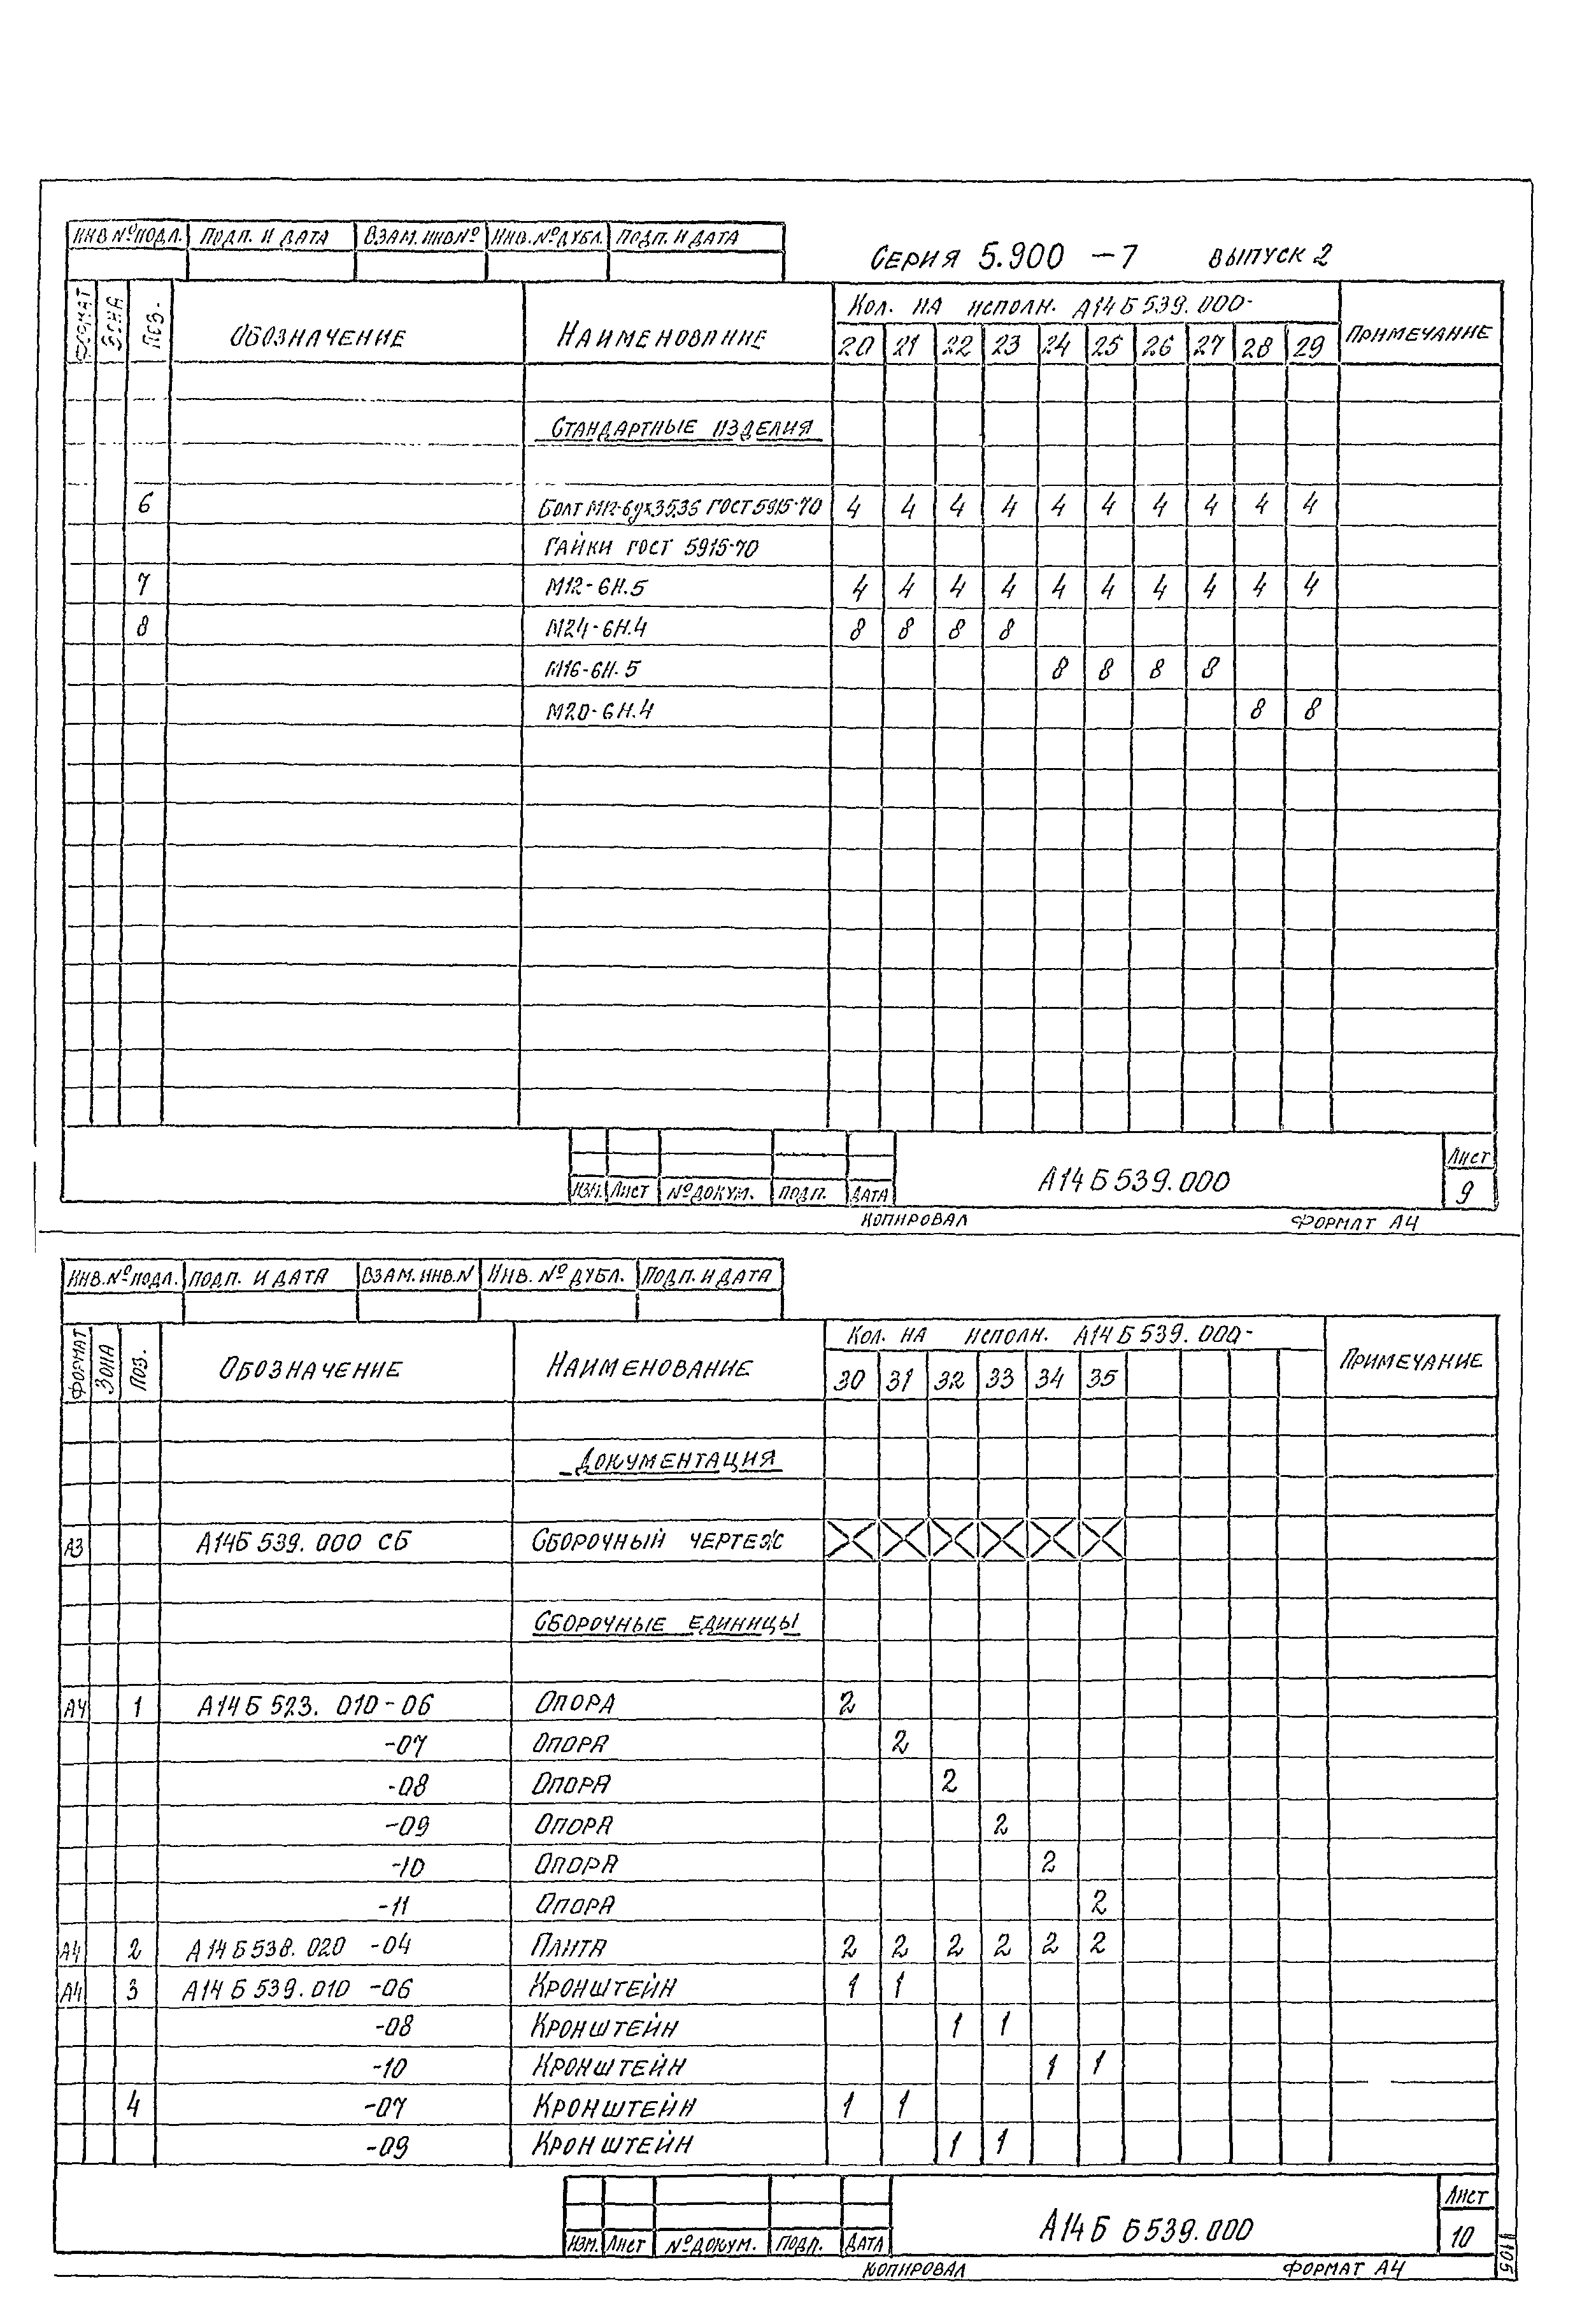 ИНВ №ПОДЛ. ПОДП. И ДАТА ВЗАМ. ИНВ№ ИНВ.№ДУБЛ. ПОДП. И ДАТА
СЕРИЯ 5.900 -7 ВЫПУСК 2
ФОРМАТ ЗОНА ПОЗ. ОБОЗНАЧЕНИЕ НАИМЕНОВАНИЕ КОЛ. НА ИСПОЛН. А14Б539.000- ПРИМЕЧАНИЕ
20 21 22 23 24 25 26 27 28 29
СТАНДАРТНЫЕ ИЗДЕЛИЯ
6 БОЛТ М12-6gх35.36 ГОСТ 5915-70 4 4 4 4 4 4 4 4 4 4
ГАЙКИ ГОСТ 5915-70
7 М12-6Н.5 4 4 4 4 4 4 4 4 4 4
8 М24-6Н.4 8 8 8 8
М16-6Н.5 8 8 8 8
М20-6Н.4 8 8
ИЗМ. ЛИСТ №ДОКУМ. ПОДП. ДАТА А14Б539.000 ЛИСТ 9
КОПИРОВАЛ ФОРМАТ А4
ИНВ.№ПОДЛ. ПОДП. И ДАТА ВЗАМ.ИНВ.N ИНВ. № ДУБЛ. ПОДП. И ДАТА
ФОРМАТ ЗОНА ПОЗ. ОБОЗНАЧЕНИЕ НАИМЕНОВАНИЕ КОЛ. НА ИСПОЛН. А14Б539.000- ПРИМЕЧАНИЕ
30 31 32 33 34 35
ДОКУМЕНТАЦИЯ
А3 А14Б539.000 СБ СБОРОЧНЫЙ ЧЕРТЕЖ
СБОРОЧНЫЕ ЕДИНИЦЫ
А4 1 А14Б523.010-06 ОПОРА 2
-07 ОПОРА 2
-08 ОПОРА 2
-09 ОПОРА 2
-10 ОПОРА 2
-11 ОПОРА 2
А4 2 А14Б538.020 -04 ПЛИТА 2 2 2 2 2 2
А4 3 А14Б539.010 -06 КРОНШТЕЙН 1 1
-08 КРОНШТЕЙН 1 1
-10 КРОНШТЕЙН 1 1
4 -07 КРОНШТЕЙН 1 1
-09 КРОНШТЕЙН 1 1
ИЗМ. ЛИСТ №ДОКУМ. ПОДП. ДАТА А14Б Б539.000 ЛИСТ 10
КОПИРОВАЛ ФОРМАТ А4